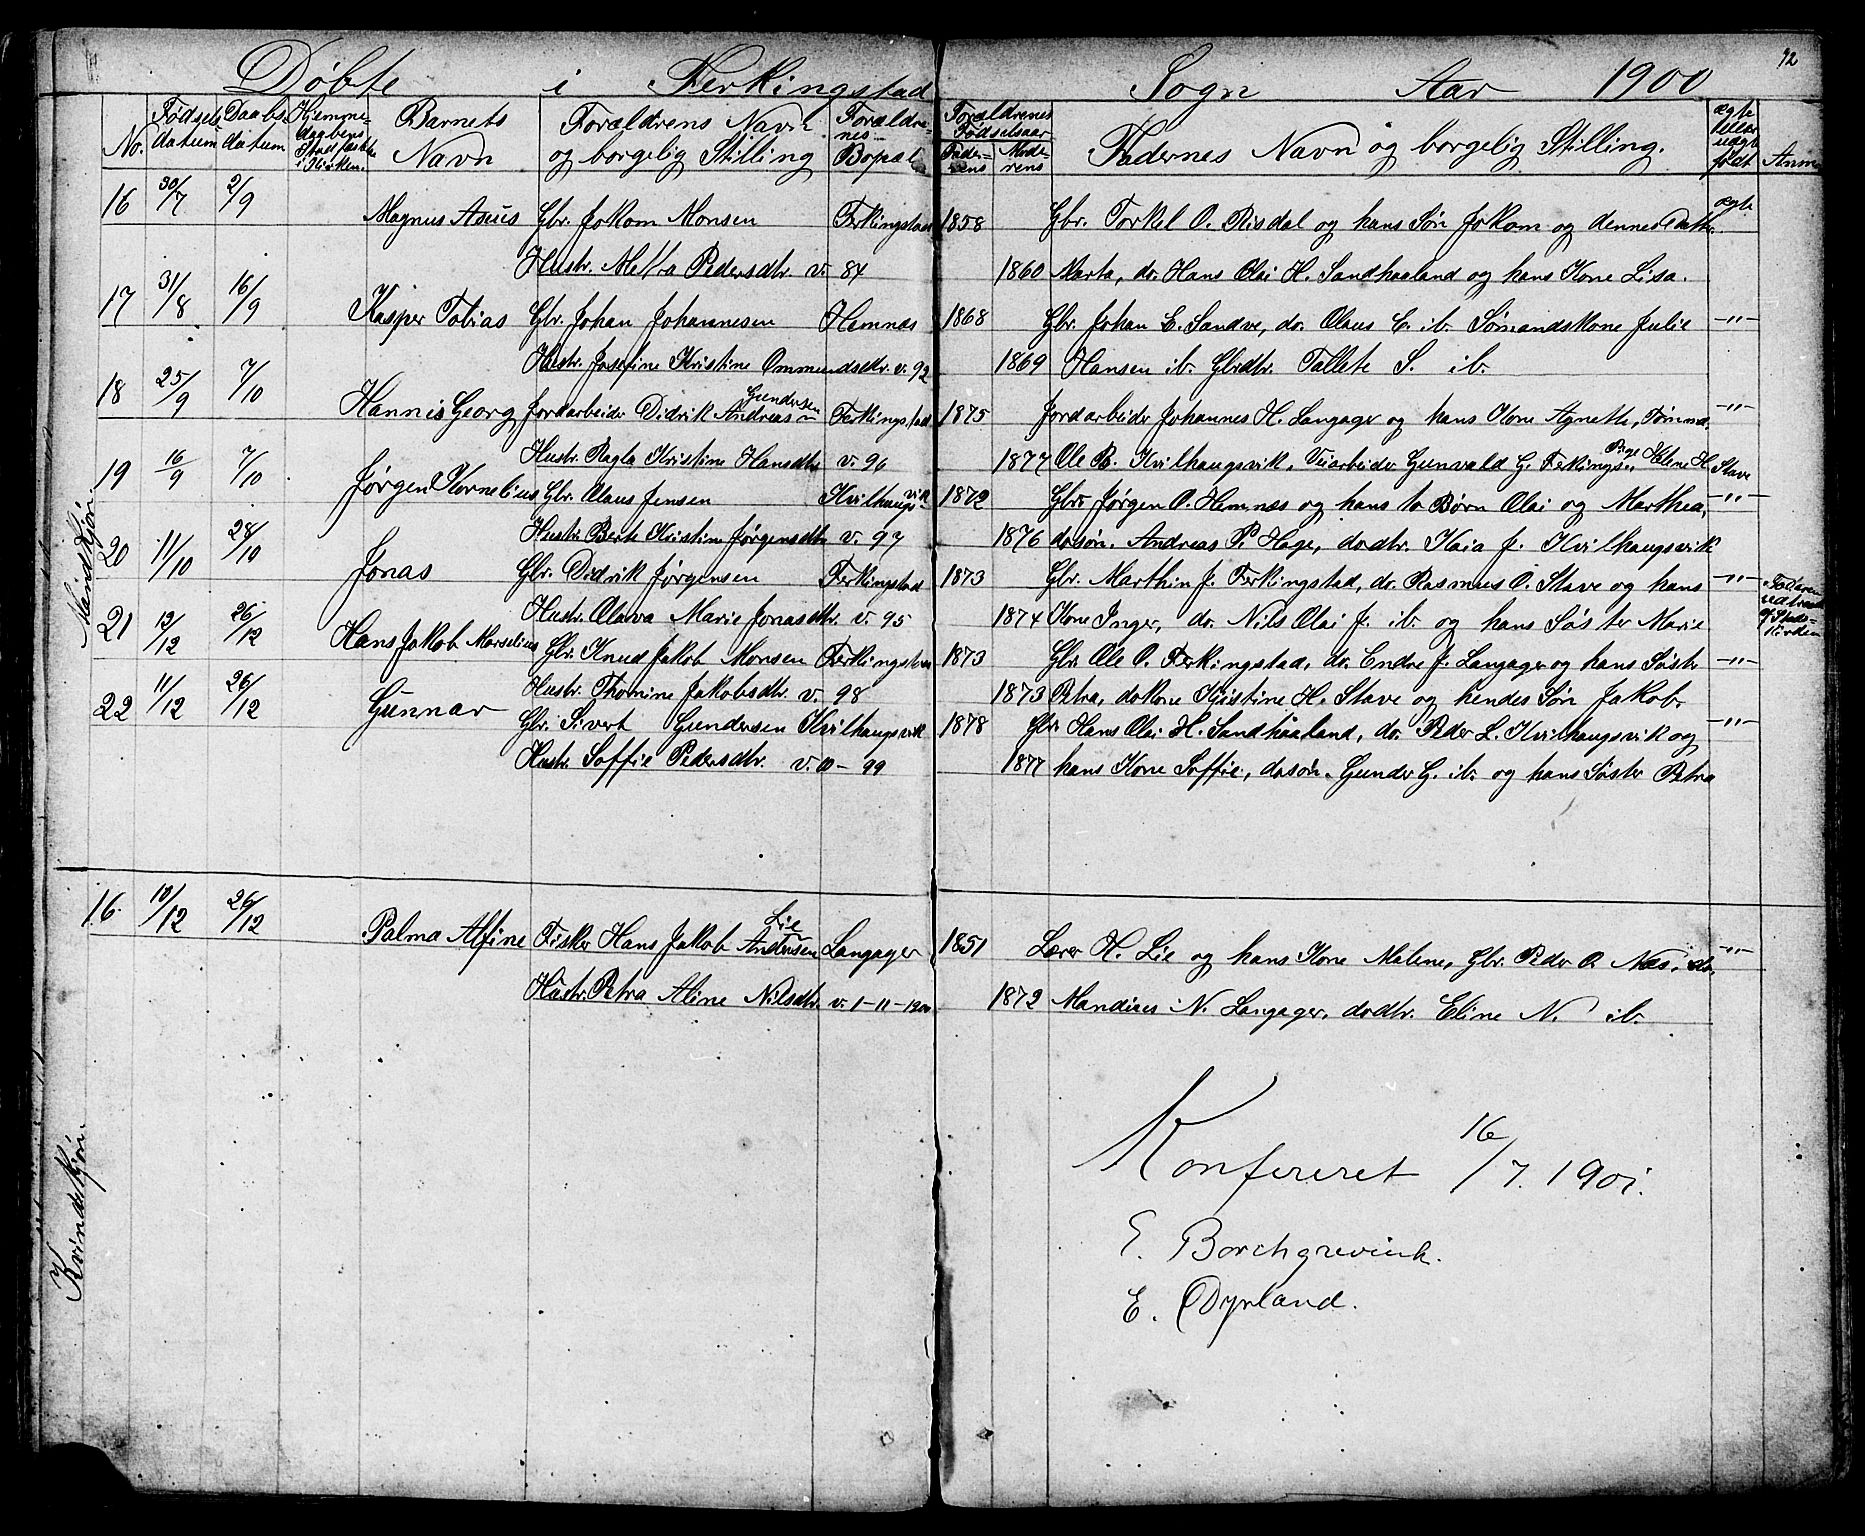 92
Døbte i Ferkingstad Sogn Aar 1900
No. Fødsels datum Daabs datum Hjemmedaabens Stadfæstelse i Kirken. Barnets Navn Forældrens Navn og borgelig Stilling Forældrenes Bopæl Forældrenes Fødselsaar Faderens Moderens Fadernes Navn og borgelig Stilling. ægte eller uægte født Anm
Mandkjøn.
16 30/7 2/9 Magnus Asius Gbr. Jokom Monsen Ferkingstad 1858 Gbr. Torkel O. Risdal og hans Søn Jokom og dennes Datter ægte
Hustr. Metta Pedersdtr. v. 84 1860 Marta, do. Hans Olai H. Sandhaaland og hans Kone Lisa.
17 31/8 16/9 Kasper Tobias Gbr. Johan Johannesen Hemnæs 1868 Gbr. Johan E. Sandve, do. Olaus E. ib. Sømandskone Julie -"-
Hustr. Josefine Kristine Ommundsdtr. v. 92 1869 Hansen ib. Gbrdtr. Tallete S. ib.
18 25/9 7/10 Hannis Georg Jordarbeider Didrik Andreas Gundersen Ferkingstad 1875 Jordarbeider Johannes H. Langager og hans Kone Agnethe, Tømmd. -"-
Hustr. Ragla Kristine Hansdtr v. 96 1877 Ole B. Kvilhaugsvik, Veiarbeider Gunvald G. Ferkings., Pige Helene H. Stave
19 16/9 7/10 Jørgen Kornelius Gbr. Olaus Jensen Kvilhaugsvik 1872 Gbr. Jørgen O. Hemnæs og hans to Børn Olai og Marthea, -"-
Hustr. Berte Kristine Jørgensdtr v. 97 1876 dosøn. Andreas P. Hage, dodtr. Kaia J. Kvilhaugsvik
20 11/10 28/10 Jonas Gbr. Didrik Jørgensen Ferkingstad 1873 Gbr. Marthin J. Ferkingstad, do. Rasmus O. Stave og hans -"-
Hustr. Olava Marie Jonasdtr. v. 95 1874 Kone Inger, do. Nils Olai J. ib. og hans Søster Marie
21 13/12 26/12 Hans Jakob Marselius Gbr. Knud Jakob Monsen Ferkingstad 1873 Gbr. Ole O. Ferkingstad, do. Endre J. Langager og hans Søstr -"-
Hustr. Thomine Jakobsdtr. v. 98 1873 Petra, dokone Kjistine H. Stave og hendes Søn Jakob.
22 11/12 26/12 Gunnar Gbr. Sivert Gundersen Kvilhaugsvik 1878 Gbr. Hans Olai H. Sandhåaland, do. Peder L. Kvilhaugsvik og -"-
Hustr. Soffie Pedersdtr. v. 10-99 1877 hans Kone Soffie, dosøn. Gunder G. ib. og hans Søster Petra
Kvindekjøn.
16. 10/12 26/12 Palma Alfine Fisker Hans Jakob Andersen Lie Langager 1851 Lærer H. Lie og hans Kone Malene, Gbr. Peder O. Næs, do. -"-
Hustr. Petra Aline Nilsdtr. v. 1-11-1900 1872 Mandius N. Langager, dodtr. Eline N. ib.
Konfereret 16/7. 1901.
E. Borchgrevink.
E. Dyrland.